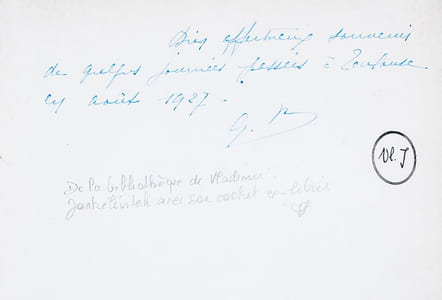 Bien affectueux souvenir
de quelques journées passées à Toulouse
en août 1927.
G. P.
Vl. J
De la bibliothèque de Vladimir
Jankélévitch avec son cachet ex-libris